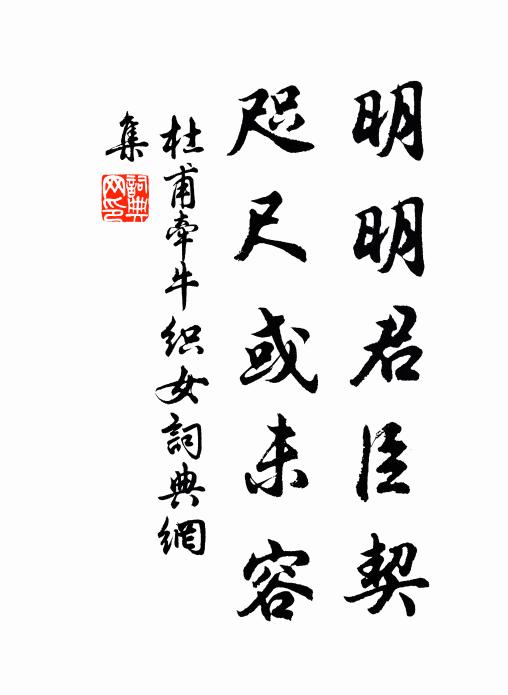 明明君臣契
咫尺或未容
杜甫牵牛织女詞典網
集
詞典
网印